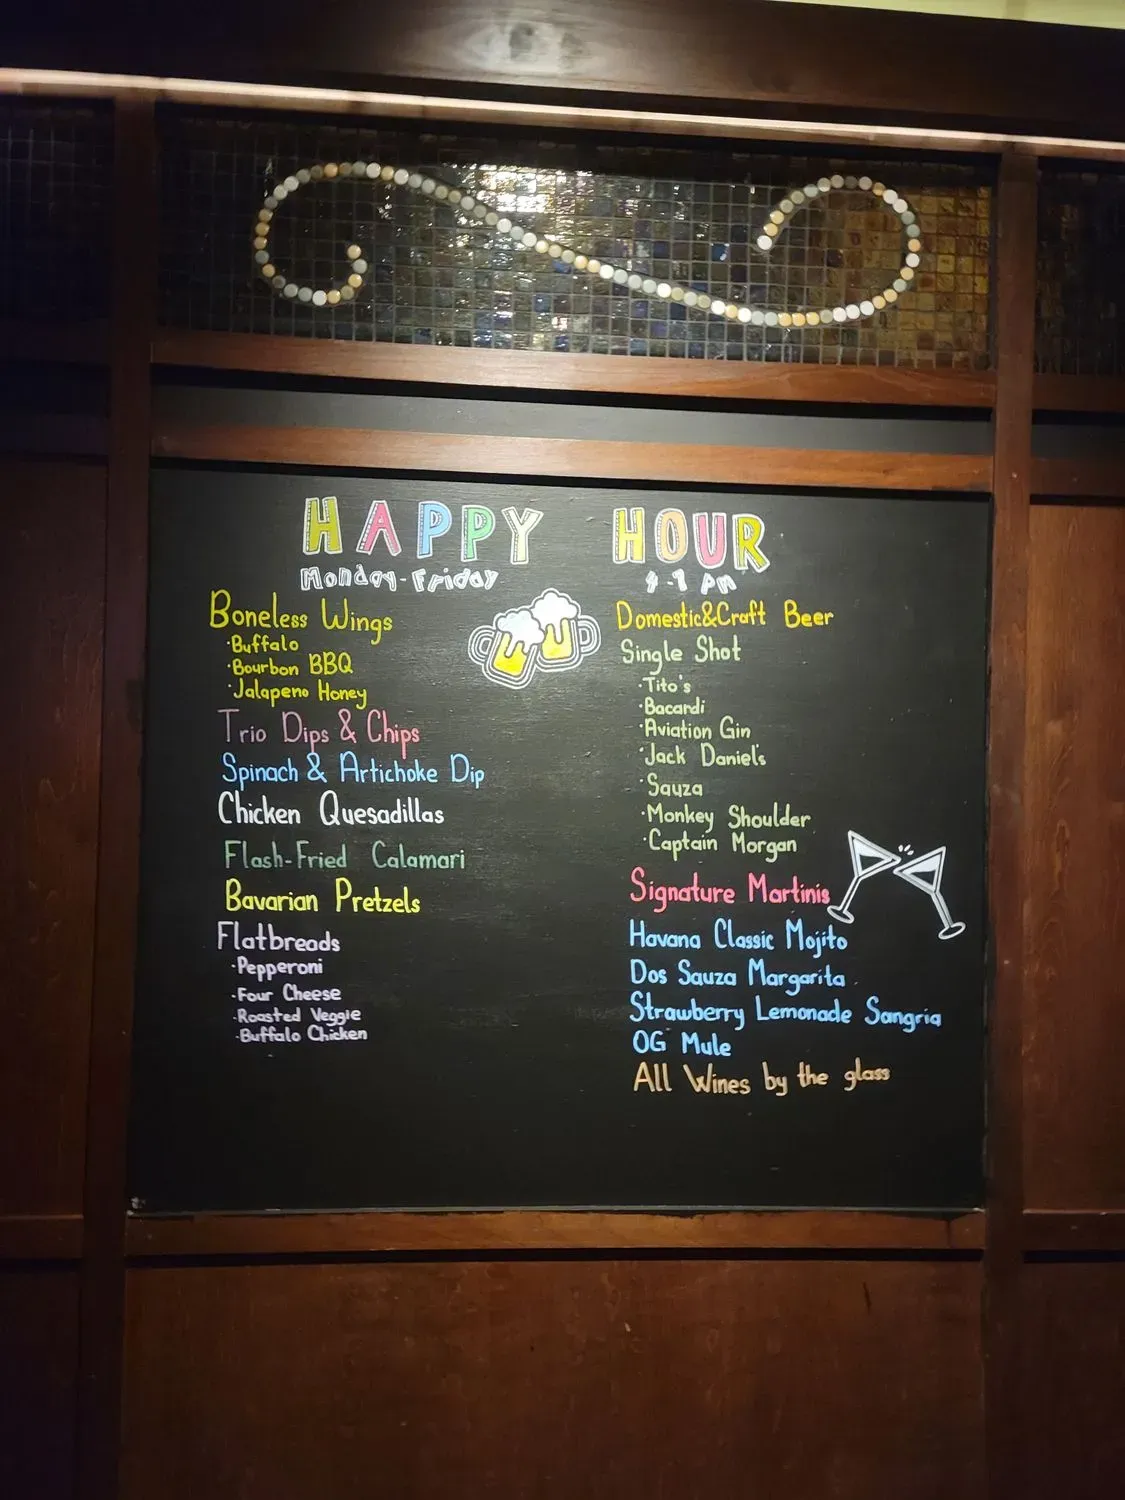 HAPPY HOUR
Monday-Friday
4-7 pm
Boneless Wings
·Buffalo
·Bourbon BBQ
·Jalapeno Honey
Trio Dips & Chips
Spinach & Artichoke Dip
Chicken Quesadillas
Flash-Fried Calamari
Bavarian Pretzels
Flatbreads
·Pepperoni
·Four Cheese
·Roasted Veggie
·Buffalo Chicken
Domestic&Craft Beer
Single Shot
·Tito's
·Bacardi
·Aviation Gin
·Jack Daniel's
·Sauza
·Monkey Shoulder
·Captain Morgan
Signature Martinis
Havana Classic Mojito
Dos Sauza Margarita
Strawberry Lemonade Sangria
OG Mule
All Wines by the glass